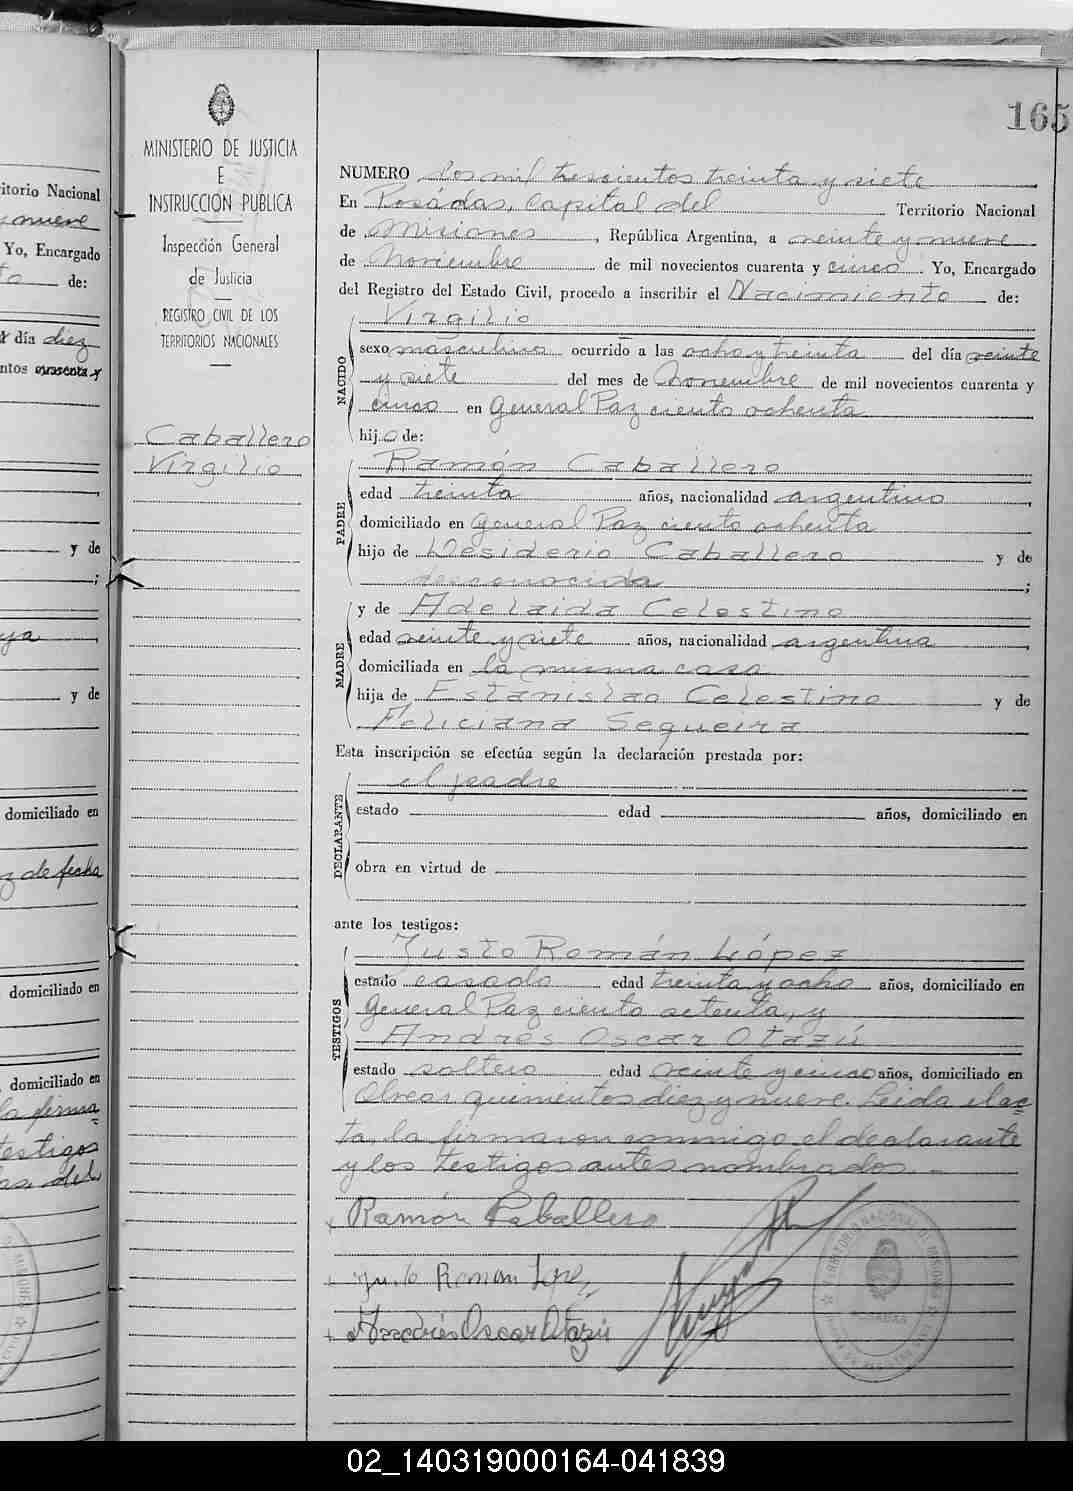 165
MINISTERIO DE JUSTICIA
E
INSTRUCCIÓN PUBLICA
Inspección General
de Justicia
REGISTRO CIVIL DE LOS
TERRITORIOS NACIONALES
Caballero
Virgilio
NUMERO dos mil trescientos treinta y siete
En Posadas, Capital del Territorio Nacional
de Misiones, República Argentina, a veinte y nueve
de Noviembre de mil novecientos cuarenta y cinco Yo, Encargado
del Registro del Estado Civil, procedo a inscribir el Nacimiento de:
NACIDO
Virgilio
sexo masculino ocurrido a las ocho y treinta del día veinte
y siete del mes de Noviembre de mil novecientos cuarenta y
cinco en General Paz ciento ochenta
hijo de:
PADRE
Ramón Caballero
edad treinta años, nacionalidad argentino
domiciliado en General Paz ciento ochenta
hijo de Desiderio Caballero y de
desconocida;
MADRE
y de Adelaida Celestino
edad veinte y siete años, nacionalidad argentina
domiciliada en la misma casa
hija de Estanislao Celestino y de
Feliciana Segueira
Esta inscripción se efectúa según la declaración prestada por:
DECLARANTE
el padre
estado edad años, domiciliado en
obra en virtud de
ante los testigos:
TESTIGOS
Justo Román López
estado casado edad treinta y ocho años, domiciliado en
General Paz ciento setenta, y
Andrés Oscar Otazú
estado soltero edad veinte y cinco años, domiciliado en
Alvear quinientos diez y nueve. Leida el ac
ta, la firmaron conmigo el declarante
y los testigos antes nombrados.-
Ramón Caballero
Justo Roman Lopez
Andrés Oscar Otazú
itorio Nacional
y nueve
Yo, Encargado
de:
día diez
y de
;
y de
domiciliado en
de fecha
domiciliado en
domiciliado en
la firma
testigos
del
02_140319000164-041839